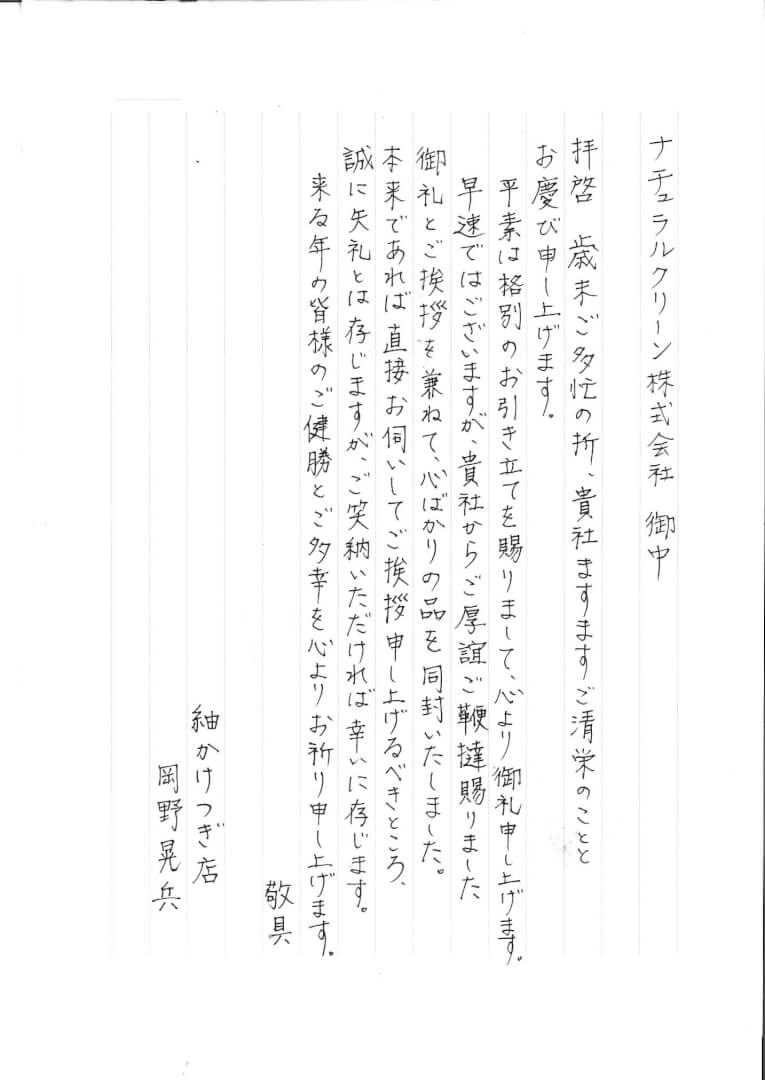 ナチュラルクリーン株式会社 御中
拝啓 歳末ご多忙の折、貴社ますますご清栄のことと
お慶び申し上げます。
平素は格別のお引き立てを賜りまして、心より御礼申し上げます。
早速ではございますが、貴社からご厚誼ご鞭撻賜りました
御礼とご挨拶を兼ねて、心ばかりの品を同封いたしました。
本来であれば直接お伺いしてご挨拶申し上げるべきところ、
誠に失礼とは存じますが、ご笑納いただければ幸いに存じます。
来る年の皆様のご健勝とご多幸を心よりお祈り申し上げます。
敬具
紬かけつぎ店
岡野晃兵